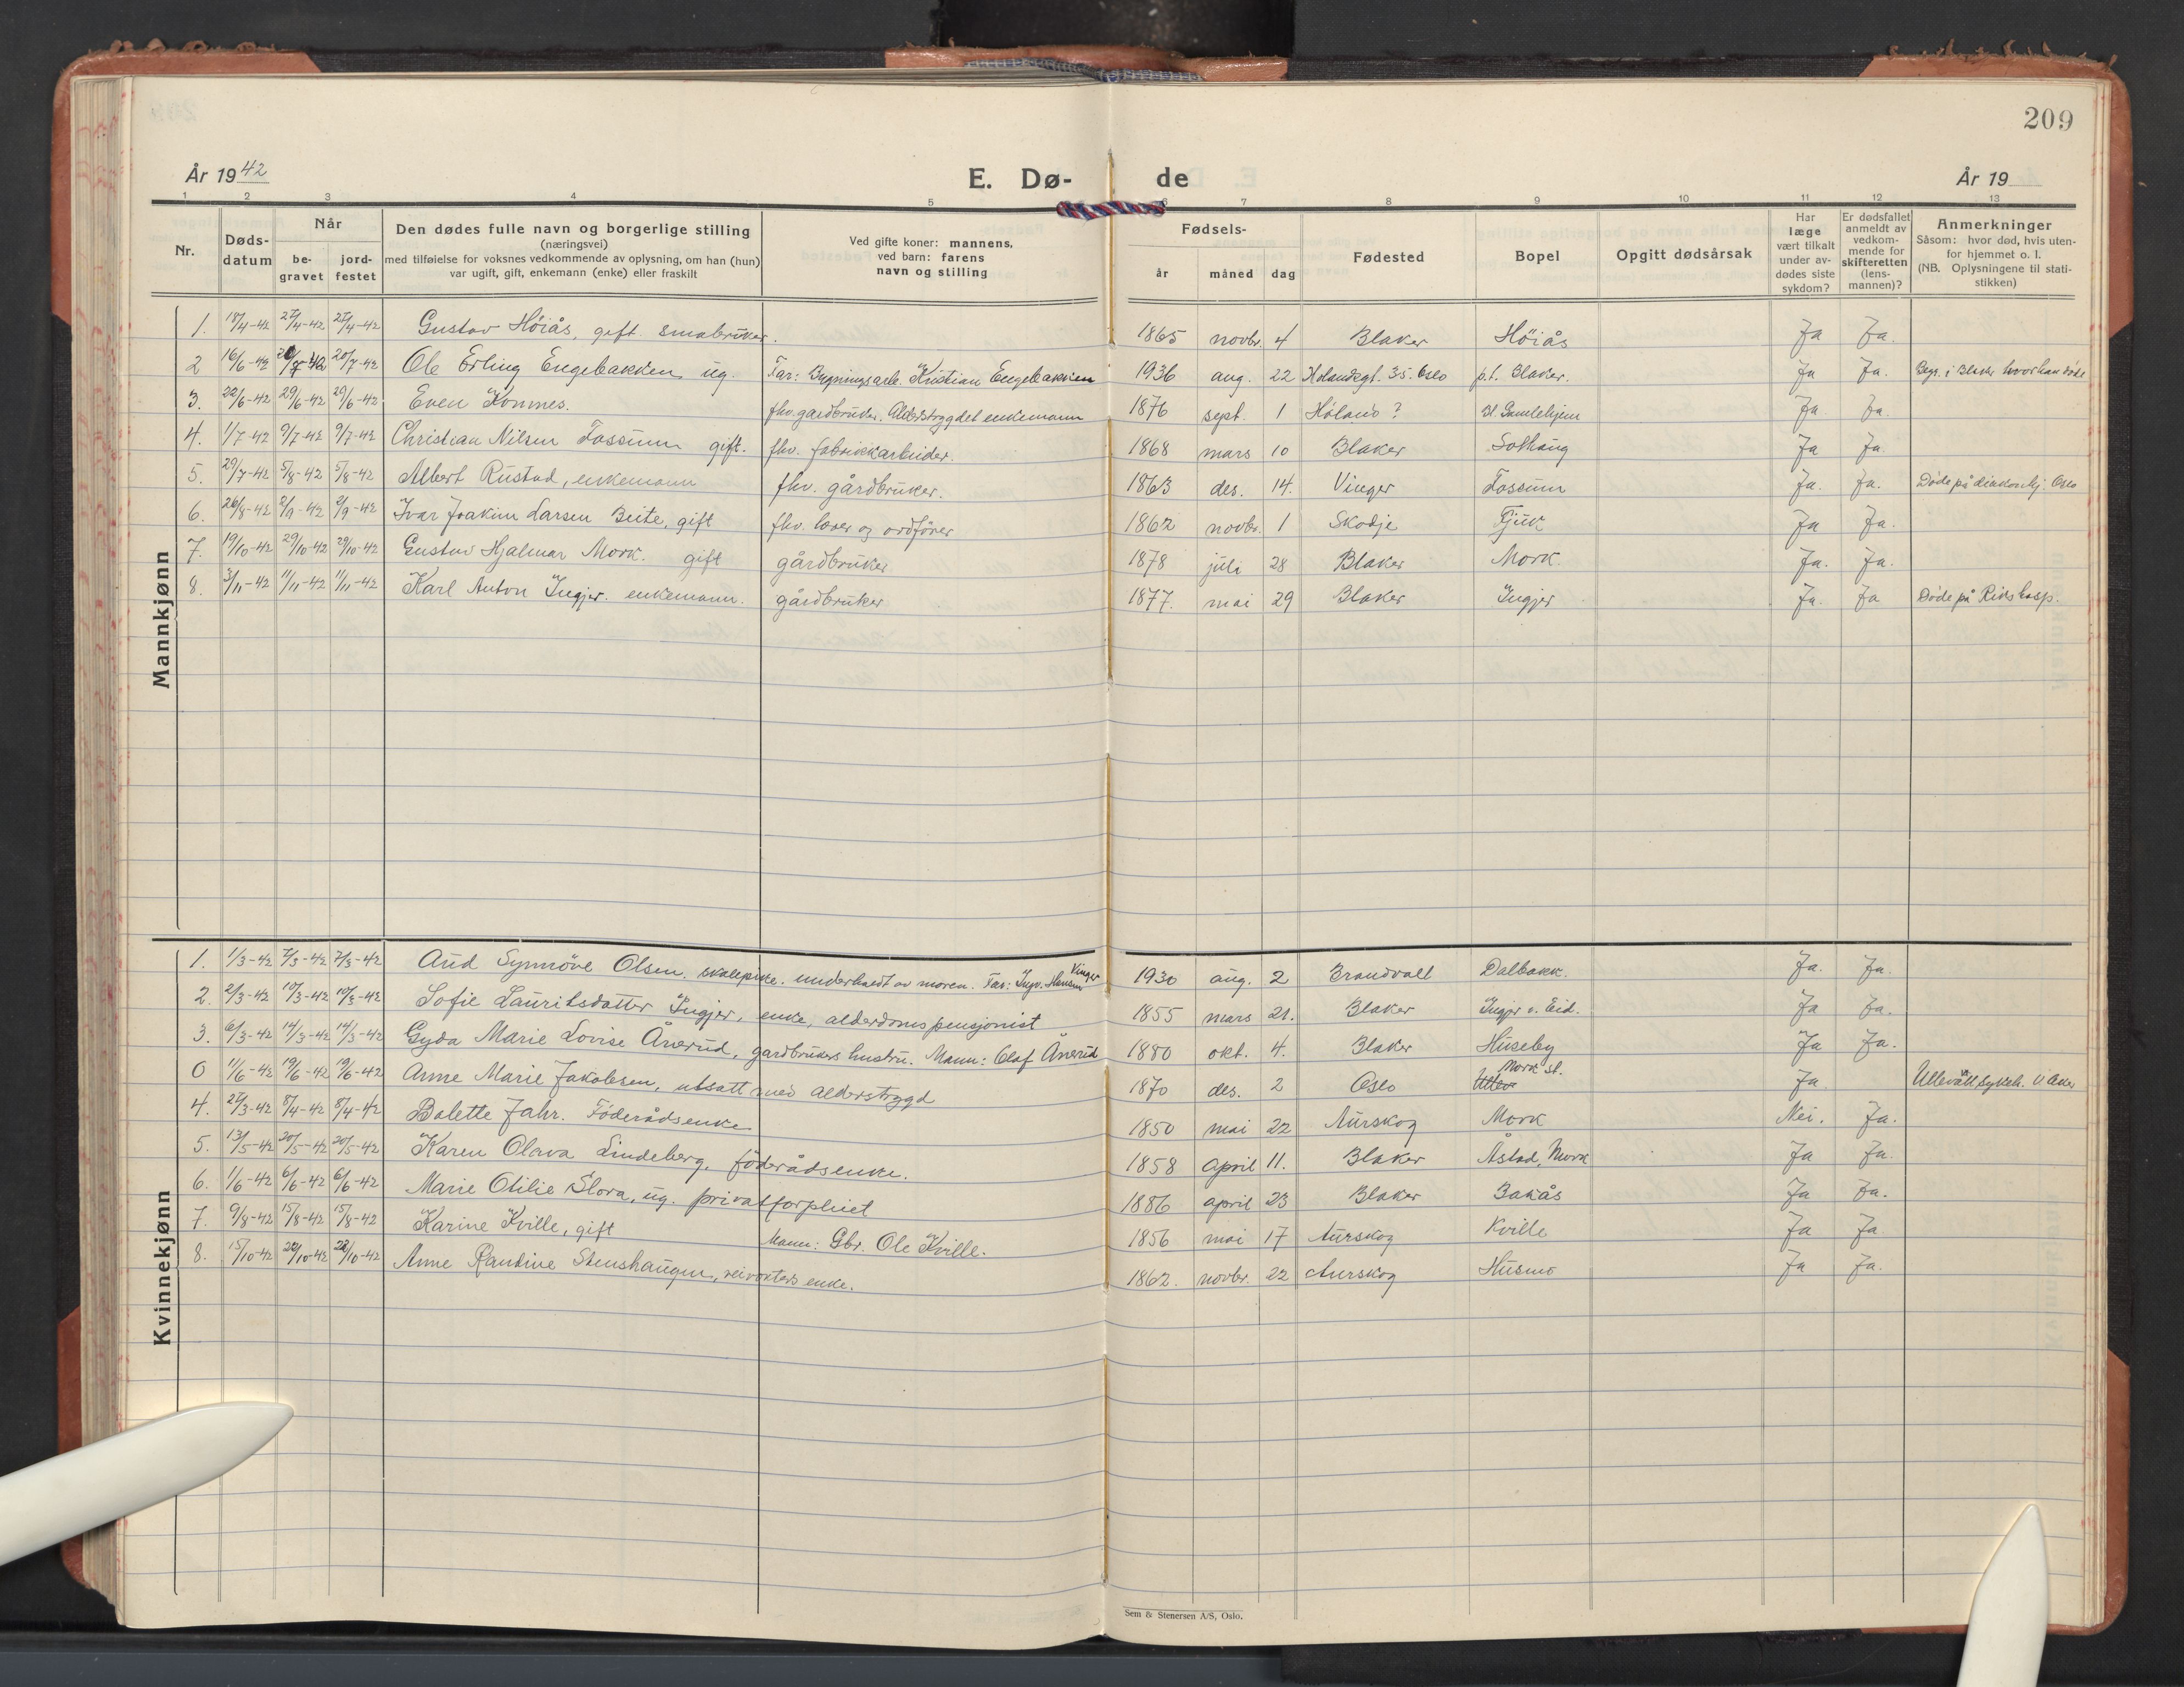 209
År 1942
E. Dø-
de
År 19
1 2 3 4 5 6 7 8 9 10 11 12 13
Nr.
Døds-
datum
Når
be-
gravet
jord-
festet
Den dødes fulle navn og borgerlige stilling
(næringsvei)
med tilføielse for voksnes vedkommende av oplysning, om han (hun)
var ugift, gift, enkemann (enke) eller fraskilt
Ved gifte koner: mannens,
ved barn: farens
navn og stilling
Fødsels-
år
måned
dag
Fødested
Bopel
Opgitt dødsårsak
Har
læge
vært tilkalt
under av-
dødes siste
sykdom?
Er dødsfallet
anmeldt av
vedkom-
mende for
skifteretten
(lens-
mannen)?
Anmerkninger
Såsom: hvor død, hvis uten-
for hjemmet o. l.
(NB. Oplysningene til stati-
stikken)
Mannkjønn
1. 18/4-42 27/4-42 27/4-42 Gustav Höiås, gift. småbruker. 1865 novbr. 4 Blaker Höiås Ja Ja.
2 16/6-42 20/7-42 20/7-42 Ole Erling Engebakken ug. Far: Bygningsarb. Kristian Engebakken 1936 aug. 22 35. Oslo p.t. Blaker. Ja Ja. Begr. i Blaker hvor han døde
3. 22/6-42 29/6-42 29/6-42 Even Konnes. fhv. gardbruker. Alderstrygdet enkemann 1876 sept. 1 Höland? Bl. Gamlehjem Ja Ja.
4. 1/7-42 9/7-42 9/7-42 Christian Nilsen Fossum gift. fhv. fabrikkarbeider. 1868 mars 10 Blaker Solhaug Ja Ja.
5. 29/7-42 5/8-42 5/8-42 Albert Rustad, enkemann fhv. gårdbruker. 1863 des. 14. Vinger Fossum Ja. Ja. Døde på diakonhj. Oslo
6. 26/8-42 2/9-42 2/9-42 Ivar Joakim Larsen Beite, gift fhv. lærer og ordfører 1862 novbr. 1 Skodje Fjuk Ja Ja.
7. 19/10-42 29/10-42 29/10-42 Gustav Hjalmar Mork. gift gårdbruker 1878 juli 28 Blaker Mork. Ja. Ja.
8. 3/11-42 11/11-42 11/11-42 Karl Anton Ingjer. enkemann. gårdbruker 1877. mai 29 Blaker Ingjer Ja. Ja Døde på Rikshosp.
Kvinnekjønn
1. 1/3-42 7/3-42 7/3-42 Aud Synnöve Olsen. skolepike. underholdt av moren. Far: Ingv. Hansen Vinger 1930 aug. 2 Brandvall Dalbakk. Ja. Ja.
2. 2/3-42 10/3-42 10/3-42 Sofie Lauritsdatter Ingjer, enke, alderdomspensjonist 1855 mars 21. Blaker Ingjer v. Eid. Ja Ja.
3. 6/3-42 14/3-42 14/3-42 Gyda Marie Lovise Ånerud, gardbrukers hustru. Mann: Olaf Ånerud 1880 okt. 4. Blaker Huseby Ja Ja.
0 11/6-42 19/6-42 19/6-42 Anne Marie Jakobsen, utsatt med alderstrygd 1870 des. 2 Oslo Mork st. Ja Ullevål sykeh. V. Aker
4. 29/3-42 8/4-42 8/4-42 Bolette Jahr. Föderådsenke 1850 mai 22 Aurskog Mork Nei. Ja.
5. 13/5-42 20/5-42 20/5-42 Karen Olava Lindeberg, föderådsenke. 1858 april 11. Blaker Åstad, Mork Ja Ja.
6. 1/6-42 6/6-42 6/6-42 Marie Otilie Slora, ug. privatforpleiet 1886 april 23 Blaker Bakås Ja Ja.
7. 9/8-42 15/8-42 15/8-42 Karine Kville, gift Mann: Gbr. Ole Kville. 1856 mai 17 Aurskog Kville Ja Ja
8. 15/10-42 22/10-42 22/10-42 Anne Randine Stenshaugen, veivokters enke. 1862. novbr. 22 Aurskog Husmo Ja Ja.
Sem & Stenersen A/S, Oslo.